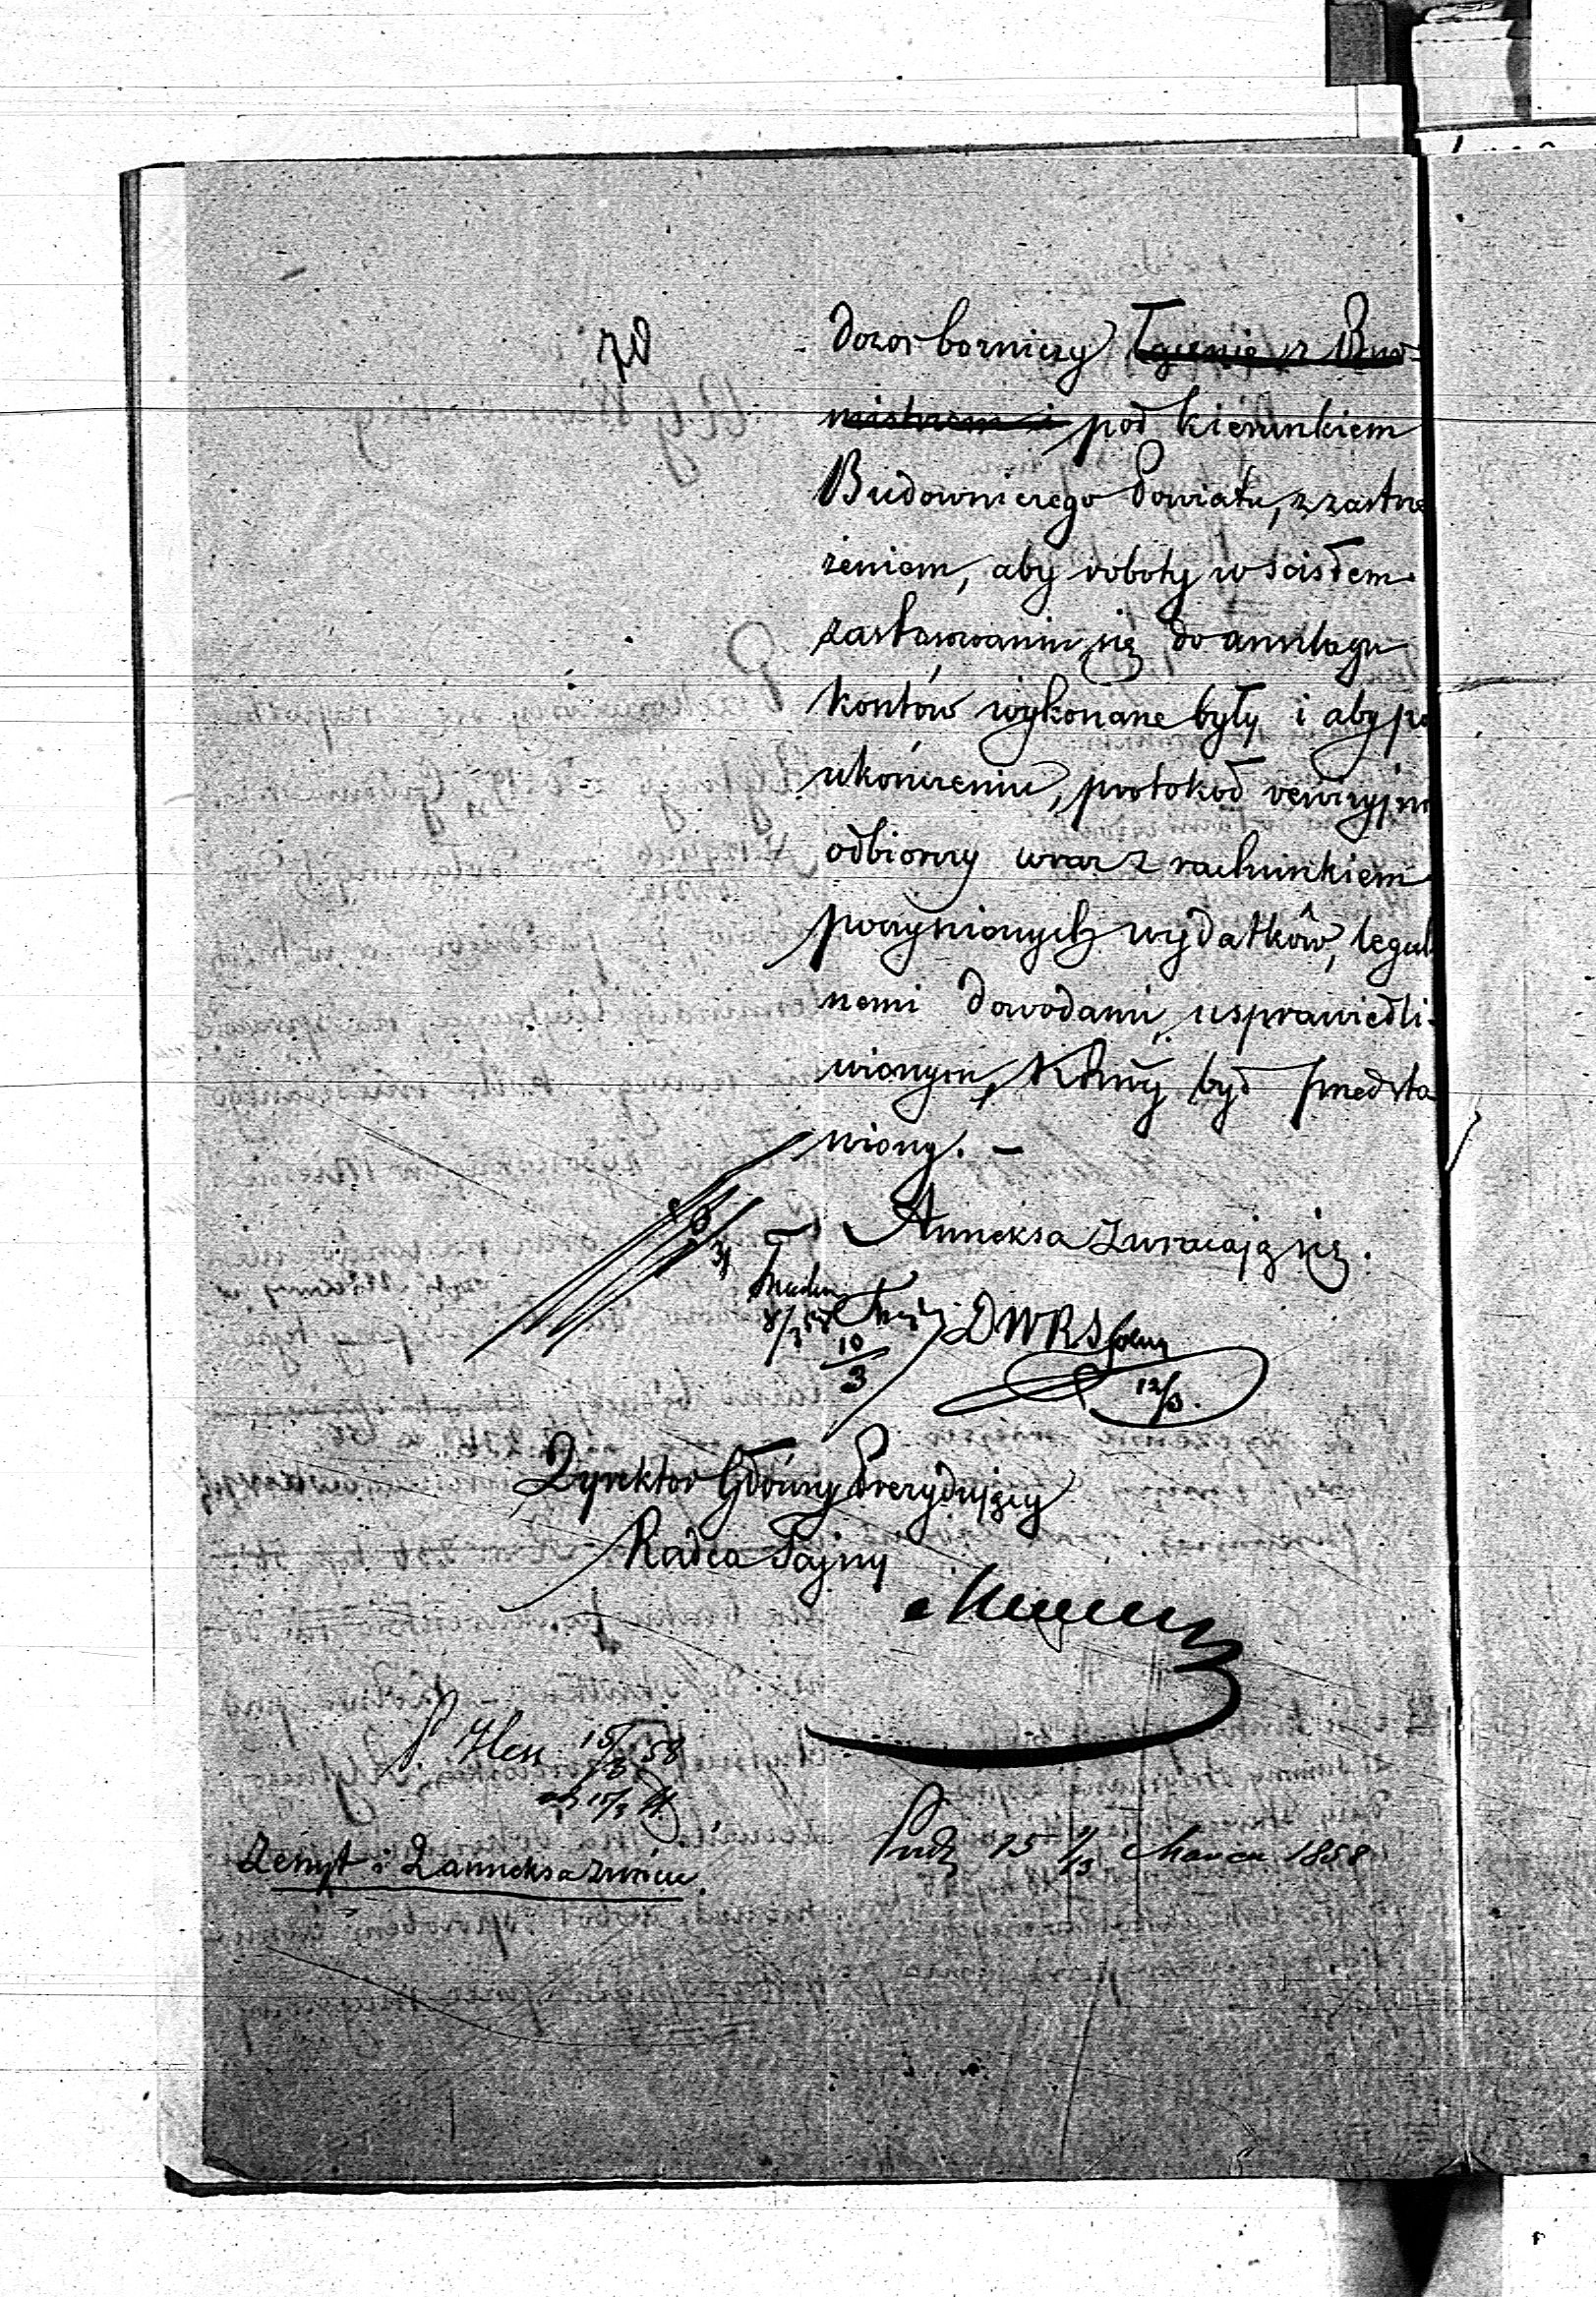 70
dozor bożniczy łącznie z Bur-
mistrzem i pod kierunkiem
Budowniczego Powiatu, z zastrze
żeniem, aby roboty w ścisłem
zastosowaniu się do anszlagu
kosztów wykonane były i aby po
ukończeniu, protokół rewizyjno
odbiorczy wraz z rachunkiem
poczynionych wydatków, legal
nemi dowodami usprawiedli-
wionym, złożony był przedsta
wiony. —
Anneksa zwracają się.
8/3 58
10/3
DWRS
12/3.
Dyrektor Główny Prezydujący
Radca Tajny
15/3 58
15/3
Zeszyt i 2 anneksa zwrócić.
15 Marca 1858